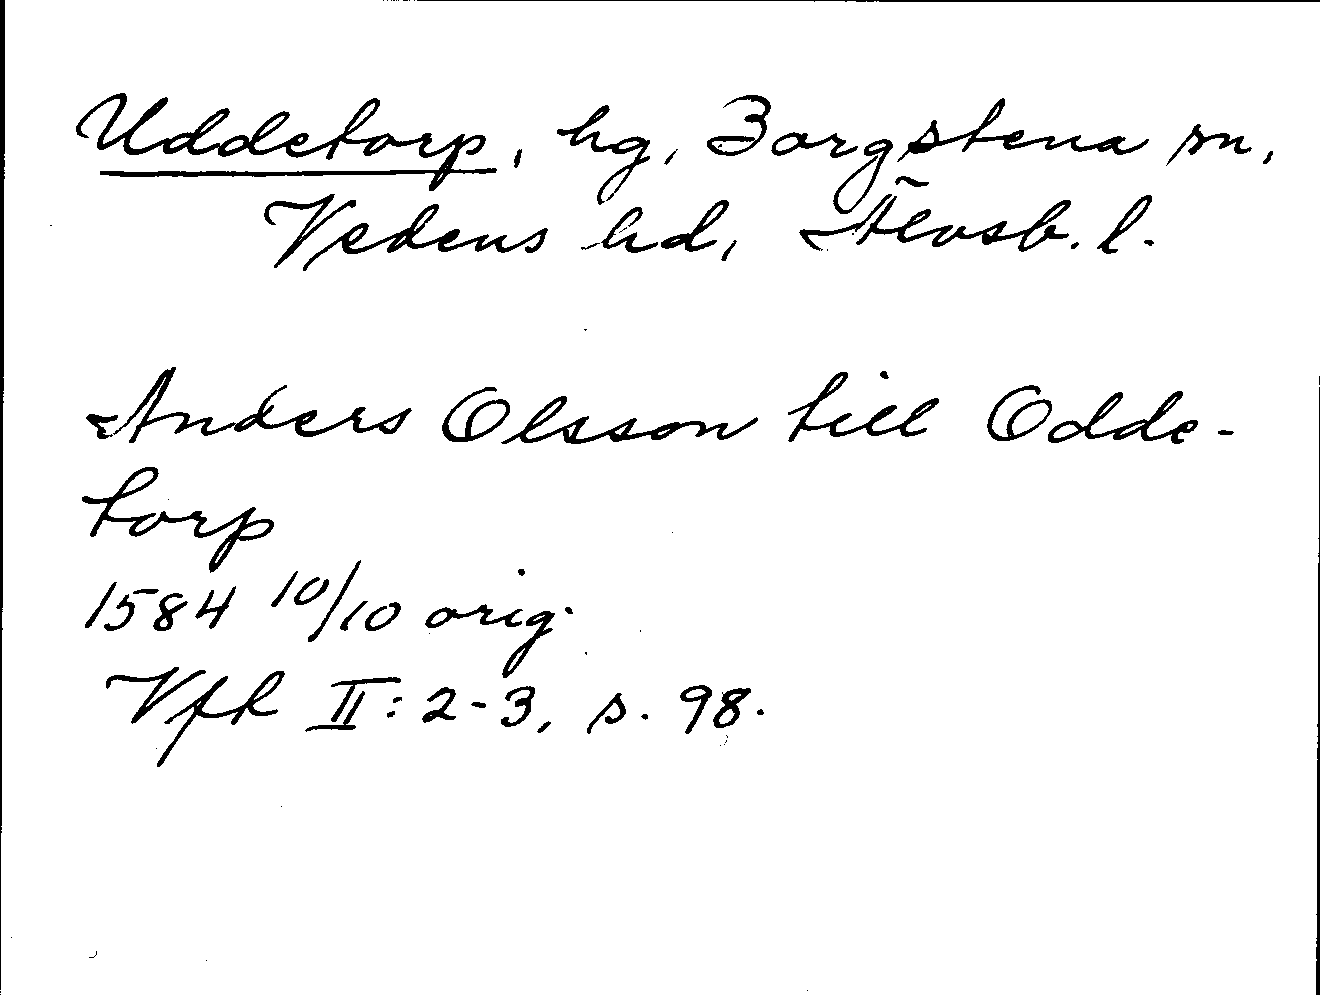 Uddetorp, hg, Borgstena sn,
Vedens hd, Älvsb. l.
Anders Olsson till Odde-
torp
1584 10/10 orig.
Vfh II: 2-3, s. 98.